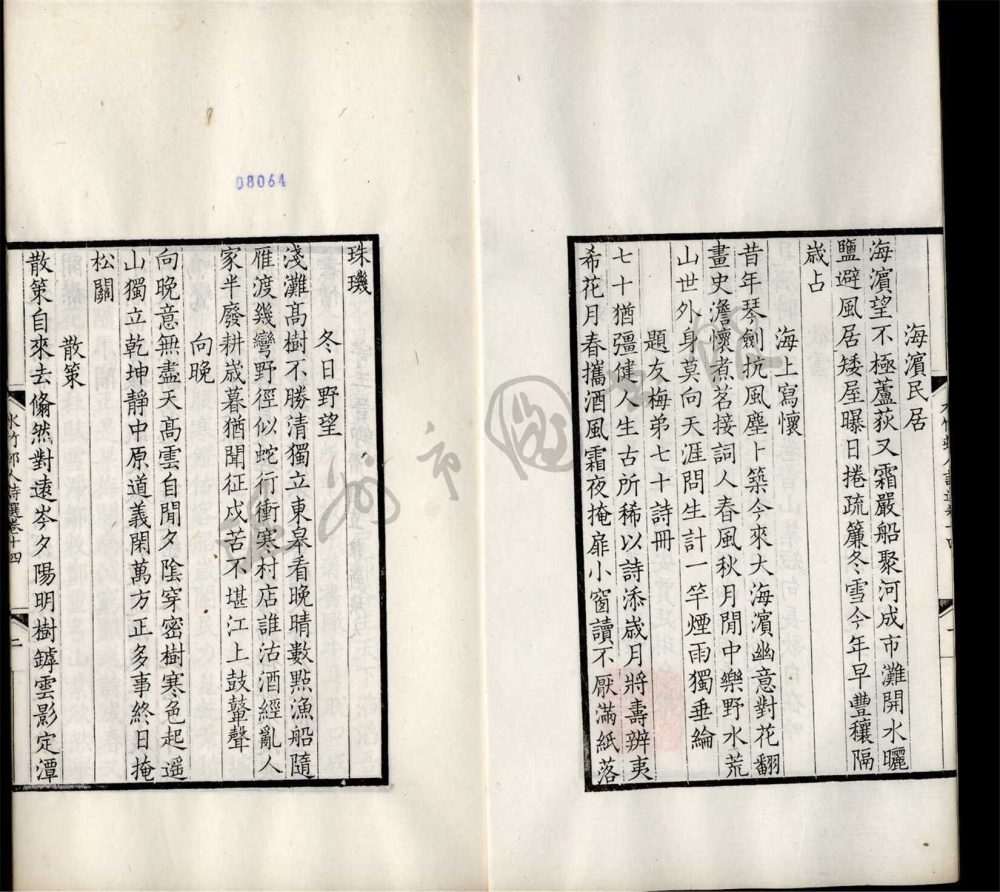 海濱民居
海濱望不極蘆荻又霜嚴船聚河成市灘開水曬
鹽避風居矮屋曝日捲疏簾冬雪今年早豐穰隔
歲占
海上寫懷
昔年琴劍抗風塵卜築今來大海濱幽意對花翻
畫史澹懷煮茗接詞人春風秋月閒中樂野水荒
山世外身莫向天涯問生計一竿煙雨獨垂綸
題友梅弟七十詩冊
七十猶彊健人生古所稀以詩添歲月將壽辨夷
希花月春攜酒風霜夜掩扉小窗讀不厭滿紙落
珠璣
冬日野望
淺灘高樹不勝清獨立東皋看晚晴數點漁船隨
雁渡幾彎野徑似蛇行衝寒村店誰沽酒經亂人
家半廢耕歲暮猶聞征戍苦不堪江上鼓鼙聲
向晚
向晚意無盡天高雲自閒夕陰穿密樹寒色起遥
山獨立乾坤靜中原道義閑萬方正多事終日掩
松關
散策
散策自來去翛然對遠岑夕陽明樹罅雲影定潭
水竹邨人詩選卷十四
二
08064